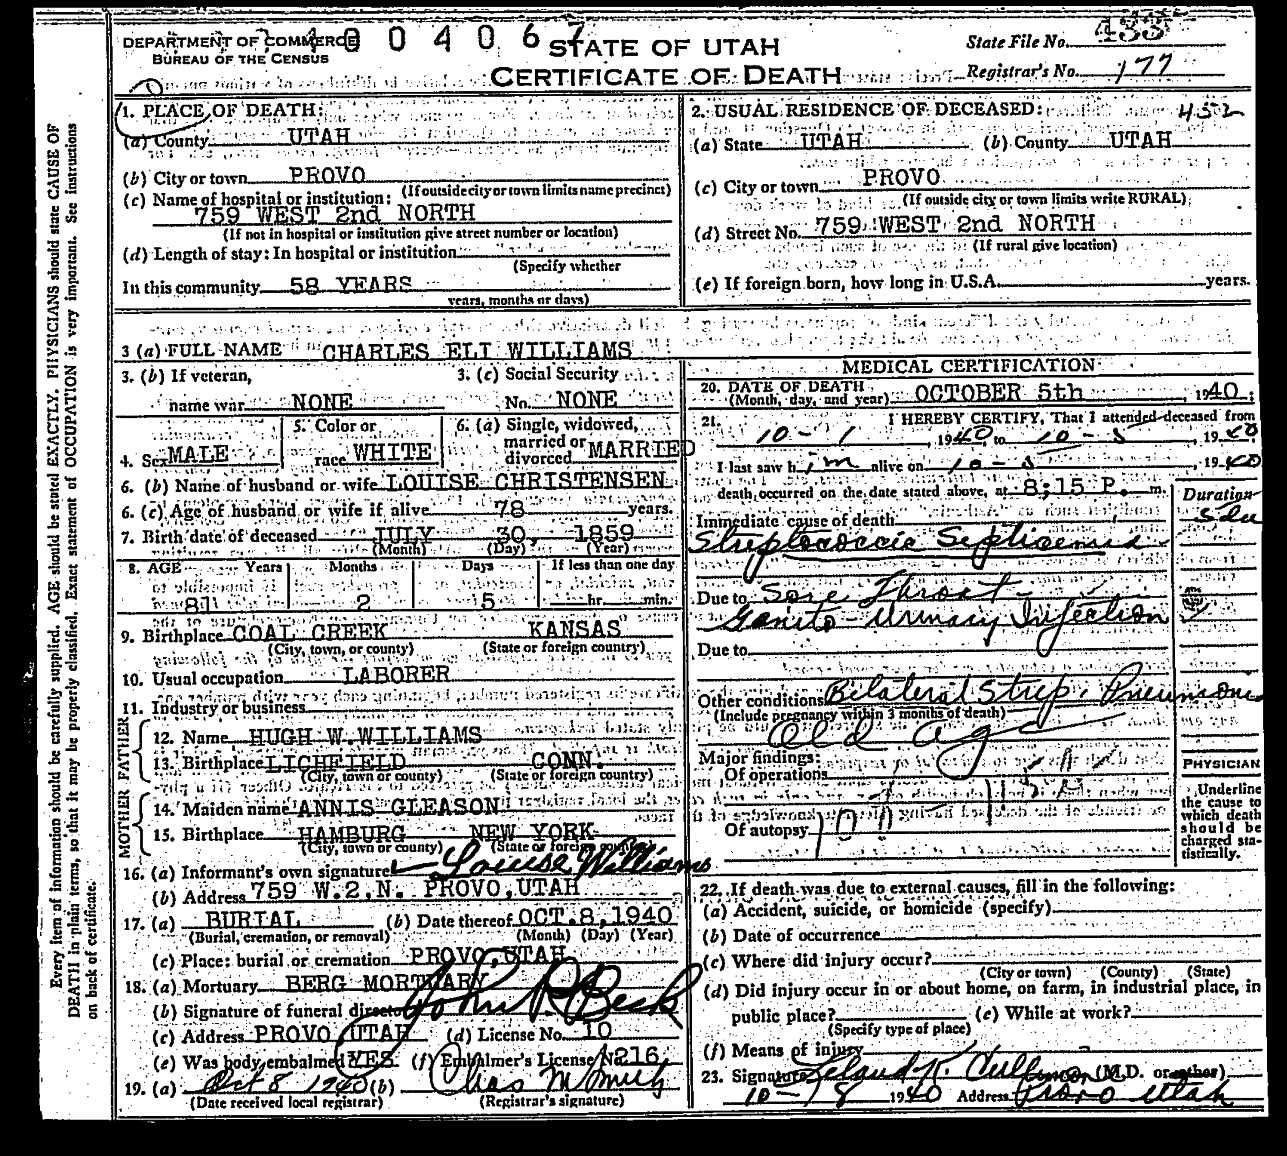 DEPARTMENT OF COMMERCE
BUREAU OF THE CENSUS
4 0 0 4 0 6 7
STATE OF UTAH
CERTIFICATE OF DEATH
State File No. 433
Registrar's No. 177
Every item of information should be carefully supplied. AGE should be stated EXACTLY. PHYSICIANS should state CAUSE OF
DEATH in plain terms, so that it may be properly classified. Exact statement of OCCUPATION is very important. See instructions
on back of certificate.
1. PLACE OF DEATH:
(a) County UTAH
(b) City or town PROVO
(If outside city or town limits name precinct)
(c) Name of hospital or institution:
759 WEST 2nd NORTH
(If not in hospital or institution give street number or location)
(d) Length of stay: In hospital or institution
(Specify whether
In this community 58 YEARS
years, months or days)
2. USUAL RESIDENCE OF DECEASED: 452
(a) State UTAH (b) County UTAH
(c) City or town PROVO
(If outside city or town limits write RURAL)
(d) Street No. 759 WEST 2nd NORTH
(If rural give location)
(e) If foreign born, how long in U.S.A. years.
3 (a) FULL NAME CHARLES ELI WILLIAMS
3. (b) If veteran,
name war NONE
3. (c) Social Security
No. NONE
4. Sex MALE
5. Color or
race WHITE
6. (a) Single, widowed,
married or
divorced MARRIED
6. (b) Name of husband or wife LOUISE CHRISTENSEN
6. (c) Age of husband or wife if alive 78 years.
7. Birth date of deceased JULY 30, 1859
(Month) (Day) (Year)
8. AGE Years Months Days If less than one day
81 2 5 hr. min.
9. Birthplace COAL CREEK KANSAS
(City, town, or county) (State or foreign country)
10. Usual occupation LABORER
11. Industry or business
FATHER
12. Name HUGH W. WILLIAMS
13. Birthplace LICHFIELD CONN.
(City, town or county) (State or foreign country)
MOTHER
14. Maiden name ANNIS GLEASON
15. Birthplace HAMBURG NEW YORK
(City, town or county) (State or foreign country)
16. (a) Informant's own signature Louise Williams
(b) Address 759 W.2.N. PROVO, UTAH
17. (a) BURIAL (b) Date thereof OCT.8,1940
(Burial, cremation, or removal) (Month) (Day) (Year)
(c) Place: burial or cremation PROVO, UTAH
18. (a) Mortuary BERG MORTUARY
(b) Signature of funeral director John R Beck
(c) Address PROVO UTAH (d) License No. 10
(e) Was body embalmed? YES (f) Embalmer's License No. 216
19. (a) Oct 8 1940 (b) Chas M Smith
(Date received local registrar) (Registrar's signature)
MEDICAL CERTIFICATION
20. DATE OF DEATH
(Month, day, and year) OCTOBER 5th, 1940;
21. I HEREBY CERTIFY, That I attended deceased from
10-1, 1940 to 10-5, 1940
I last saw him alive on 10-5, 1940
death occurred on the date stated above, at 8;15 P. m.
Duration
Immediate cause of death
Streptococcic Septicemia
Due to Sore Throat
Genito-Urinary Infection
Due to
Other conditions Bilateral Strep. Pneumonia
(Include pregnancy within 3 months of death)
Old Age
Major findings:
Of operations
Of autopsy
PHYSICIAN
Underline
the cause to
which death
should be
charged sta-
tistically.
22. If death was due to external causes, fill in the following:
(a) Accident, suicide, or homicide (specify)
(b) Date of occurrence
(c) Where did injury occur?
(City or town) (County) (State)
(d) Did injury occur in or about home, on farm, in industrial place, in
public place? (e) While at work?
(Specify type of place)
(f) Means of injury
23. Signature Leland K. Cullimore (M.D. or other)
10-8 1940 Address Provo Utah